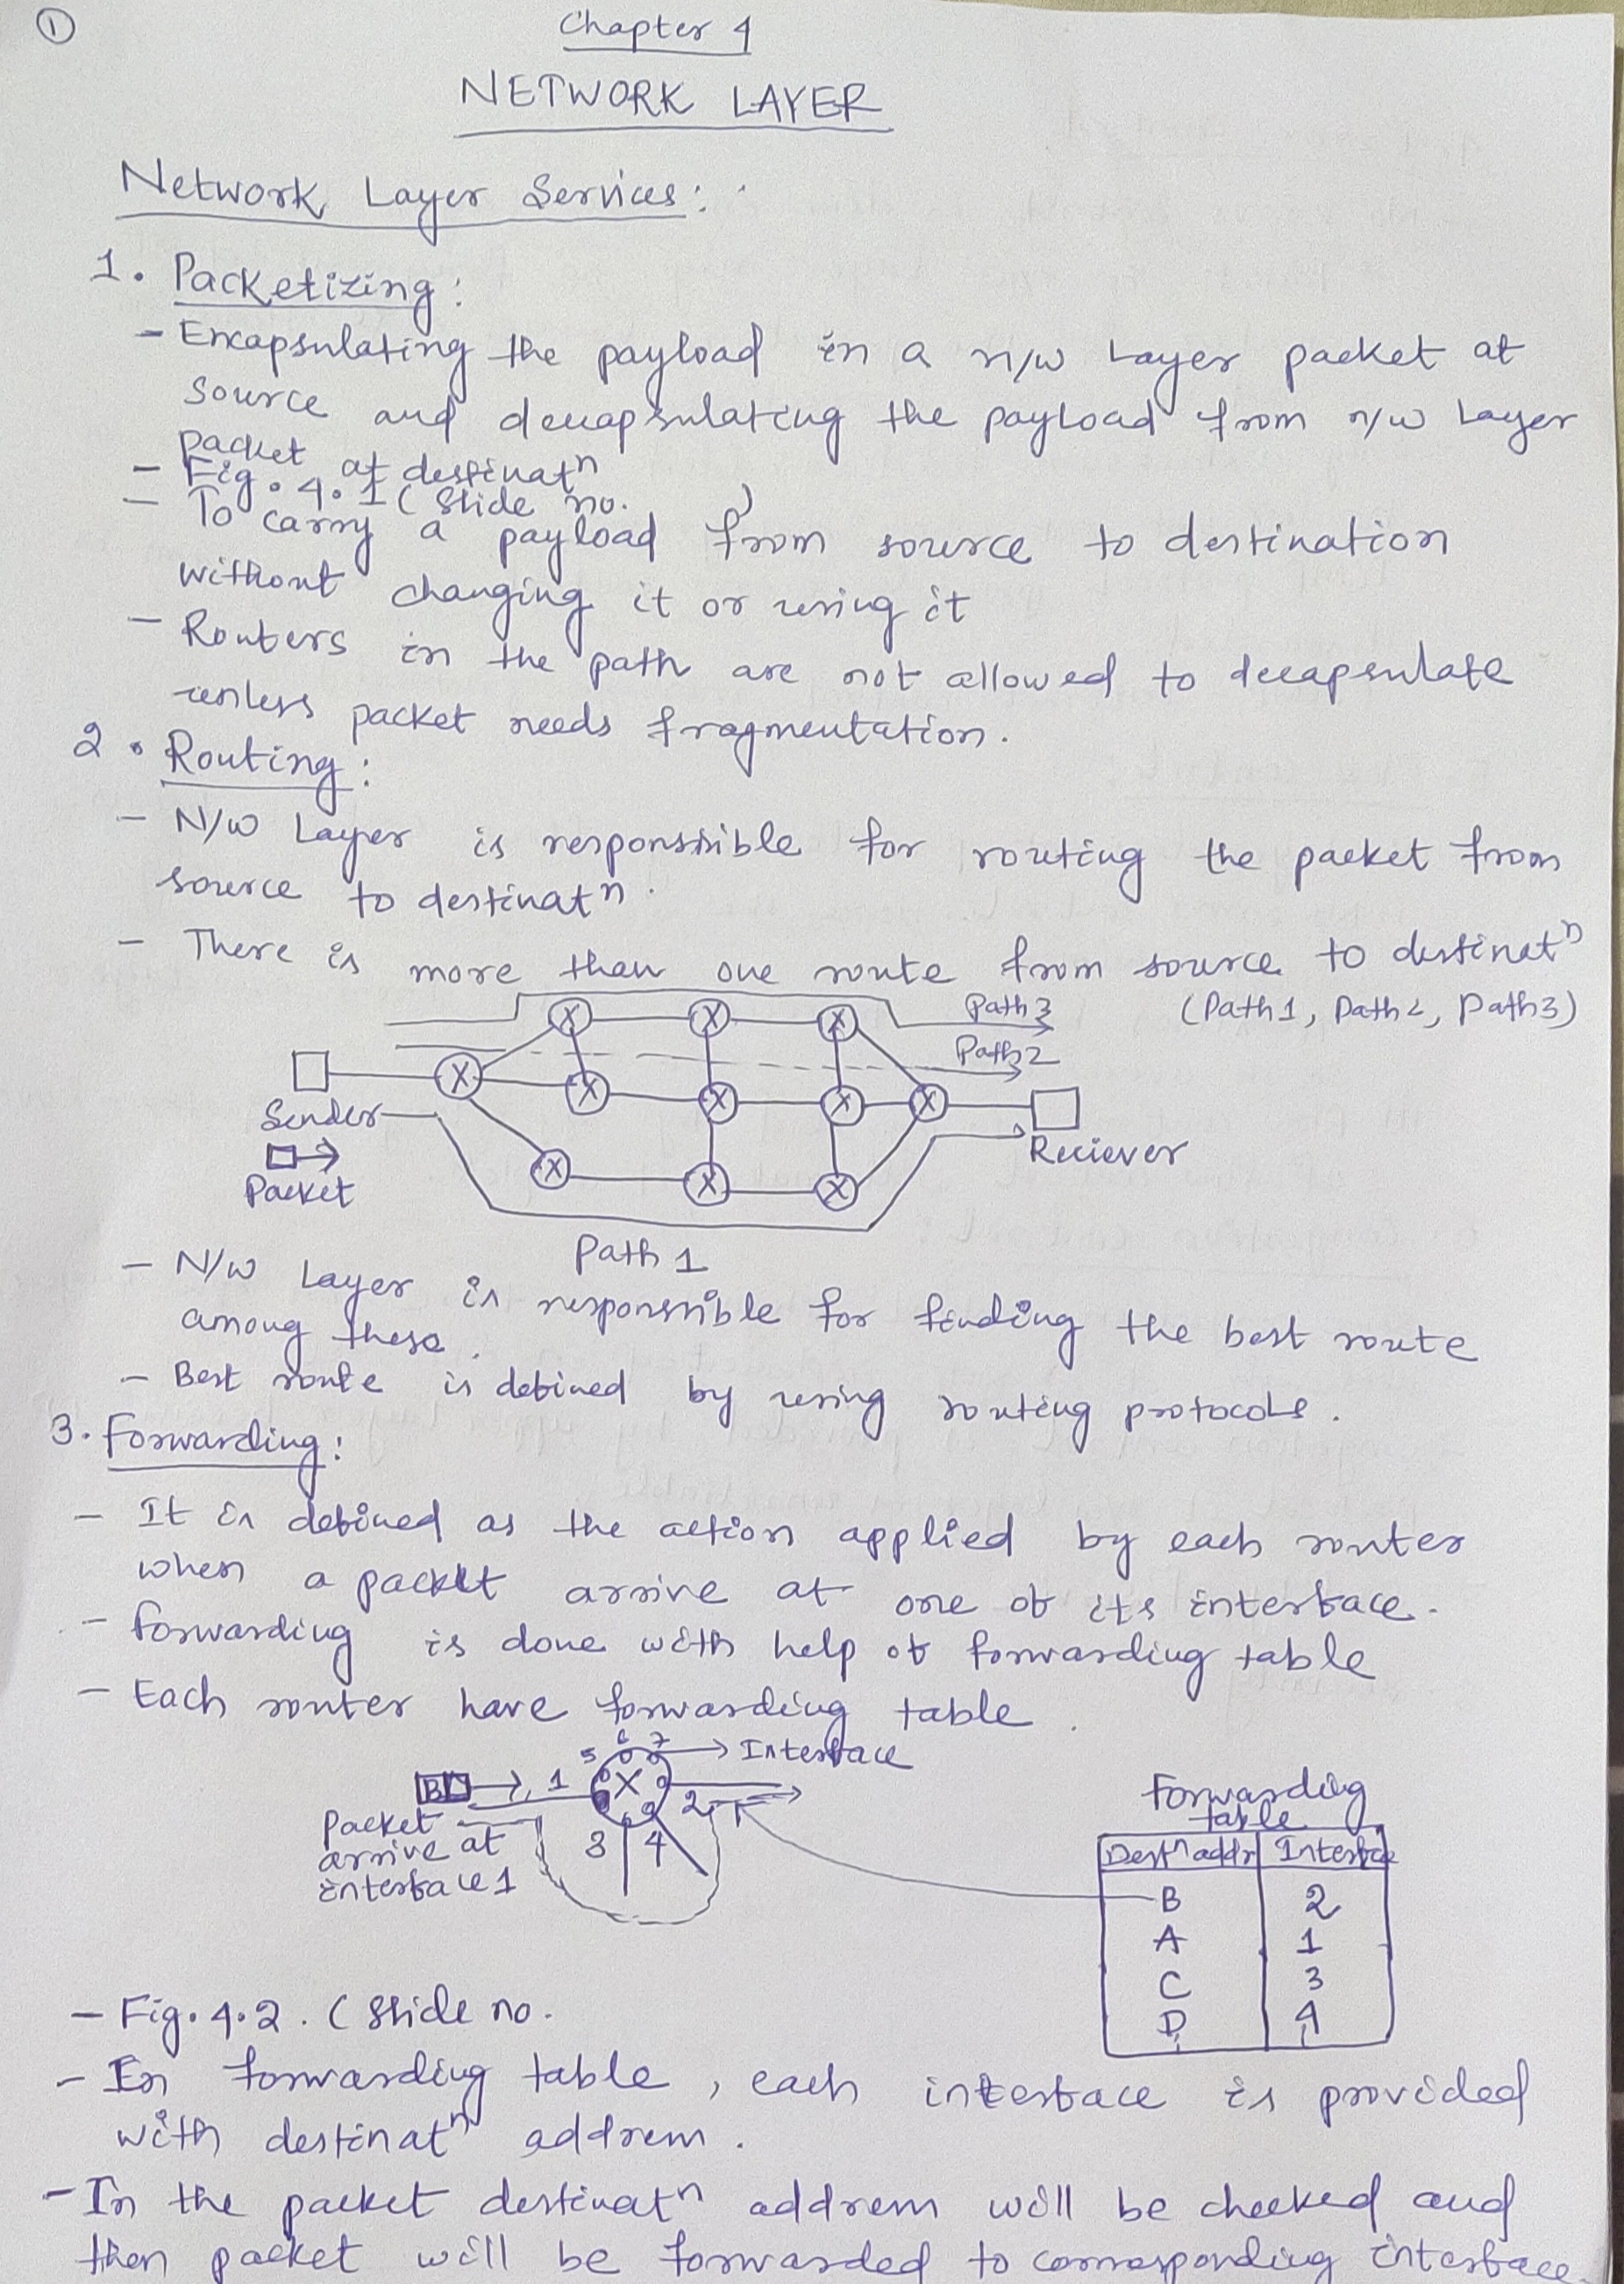 1
Chapter 4
NETWORK LAYER
Network Layer Services:
1. Packetizing:
- Encapsulating the payload in a n/w Layer packet at
source and decapsulating the payload from n/w Layer
packet at destinatⁿ
- Fig. 4.1 ( Slide no. )
- To carry a payload from source to destination
without changing it or using it
- Routers in the path are not allowed to decapsulate
unless packet needs fragmentation.
2. Routing:
- N/w Layer is responsible for routing the packet from
source to destinatⁿ.
- There is more than one route from source to destinatⁿ
(Path1, Path2, Path3)
Path3
Path2
Sender
Reciever
Packet
Path 1
- N/w Layer is responsible for finding the best route
among these.
- Best route is defined by using routing protocols.
3. Forwarding:
- It is defined as the action applied by each router
when a packet arrive at one of its interface.
- Forwarding is done with help of forwarding table
- Each router have forwarding table.
5 6 7 Interface
B 1 X 2
3 4
Packet
arrive at
interface 1
Forwarding
table
Destⁿ addr Interface
B 2
A 1
C 3
D 4
- Fig. 4.2. ( Slide no.
- In forwarding table, each interface is provided
with destinatⁿ address.
- In the packet destinatⁿ address will be checked and
then packet will be forwarded to corresponding interface.